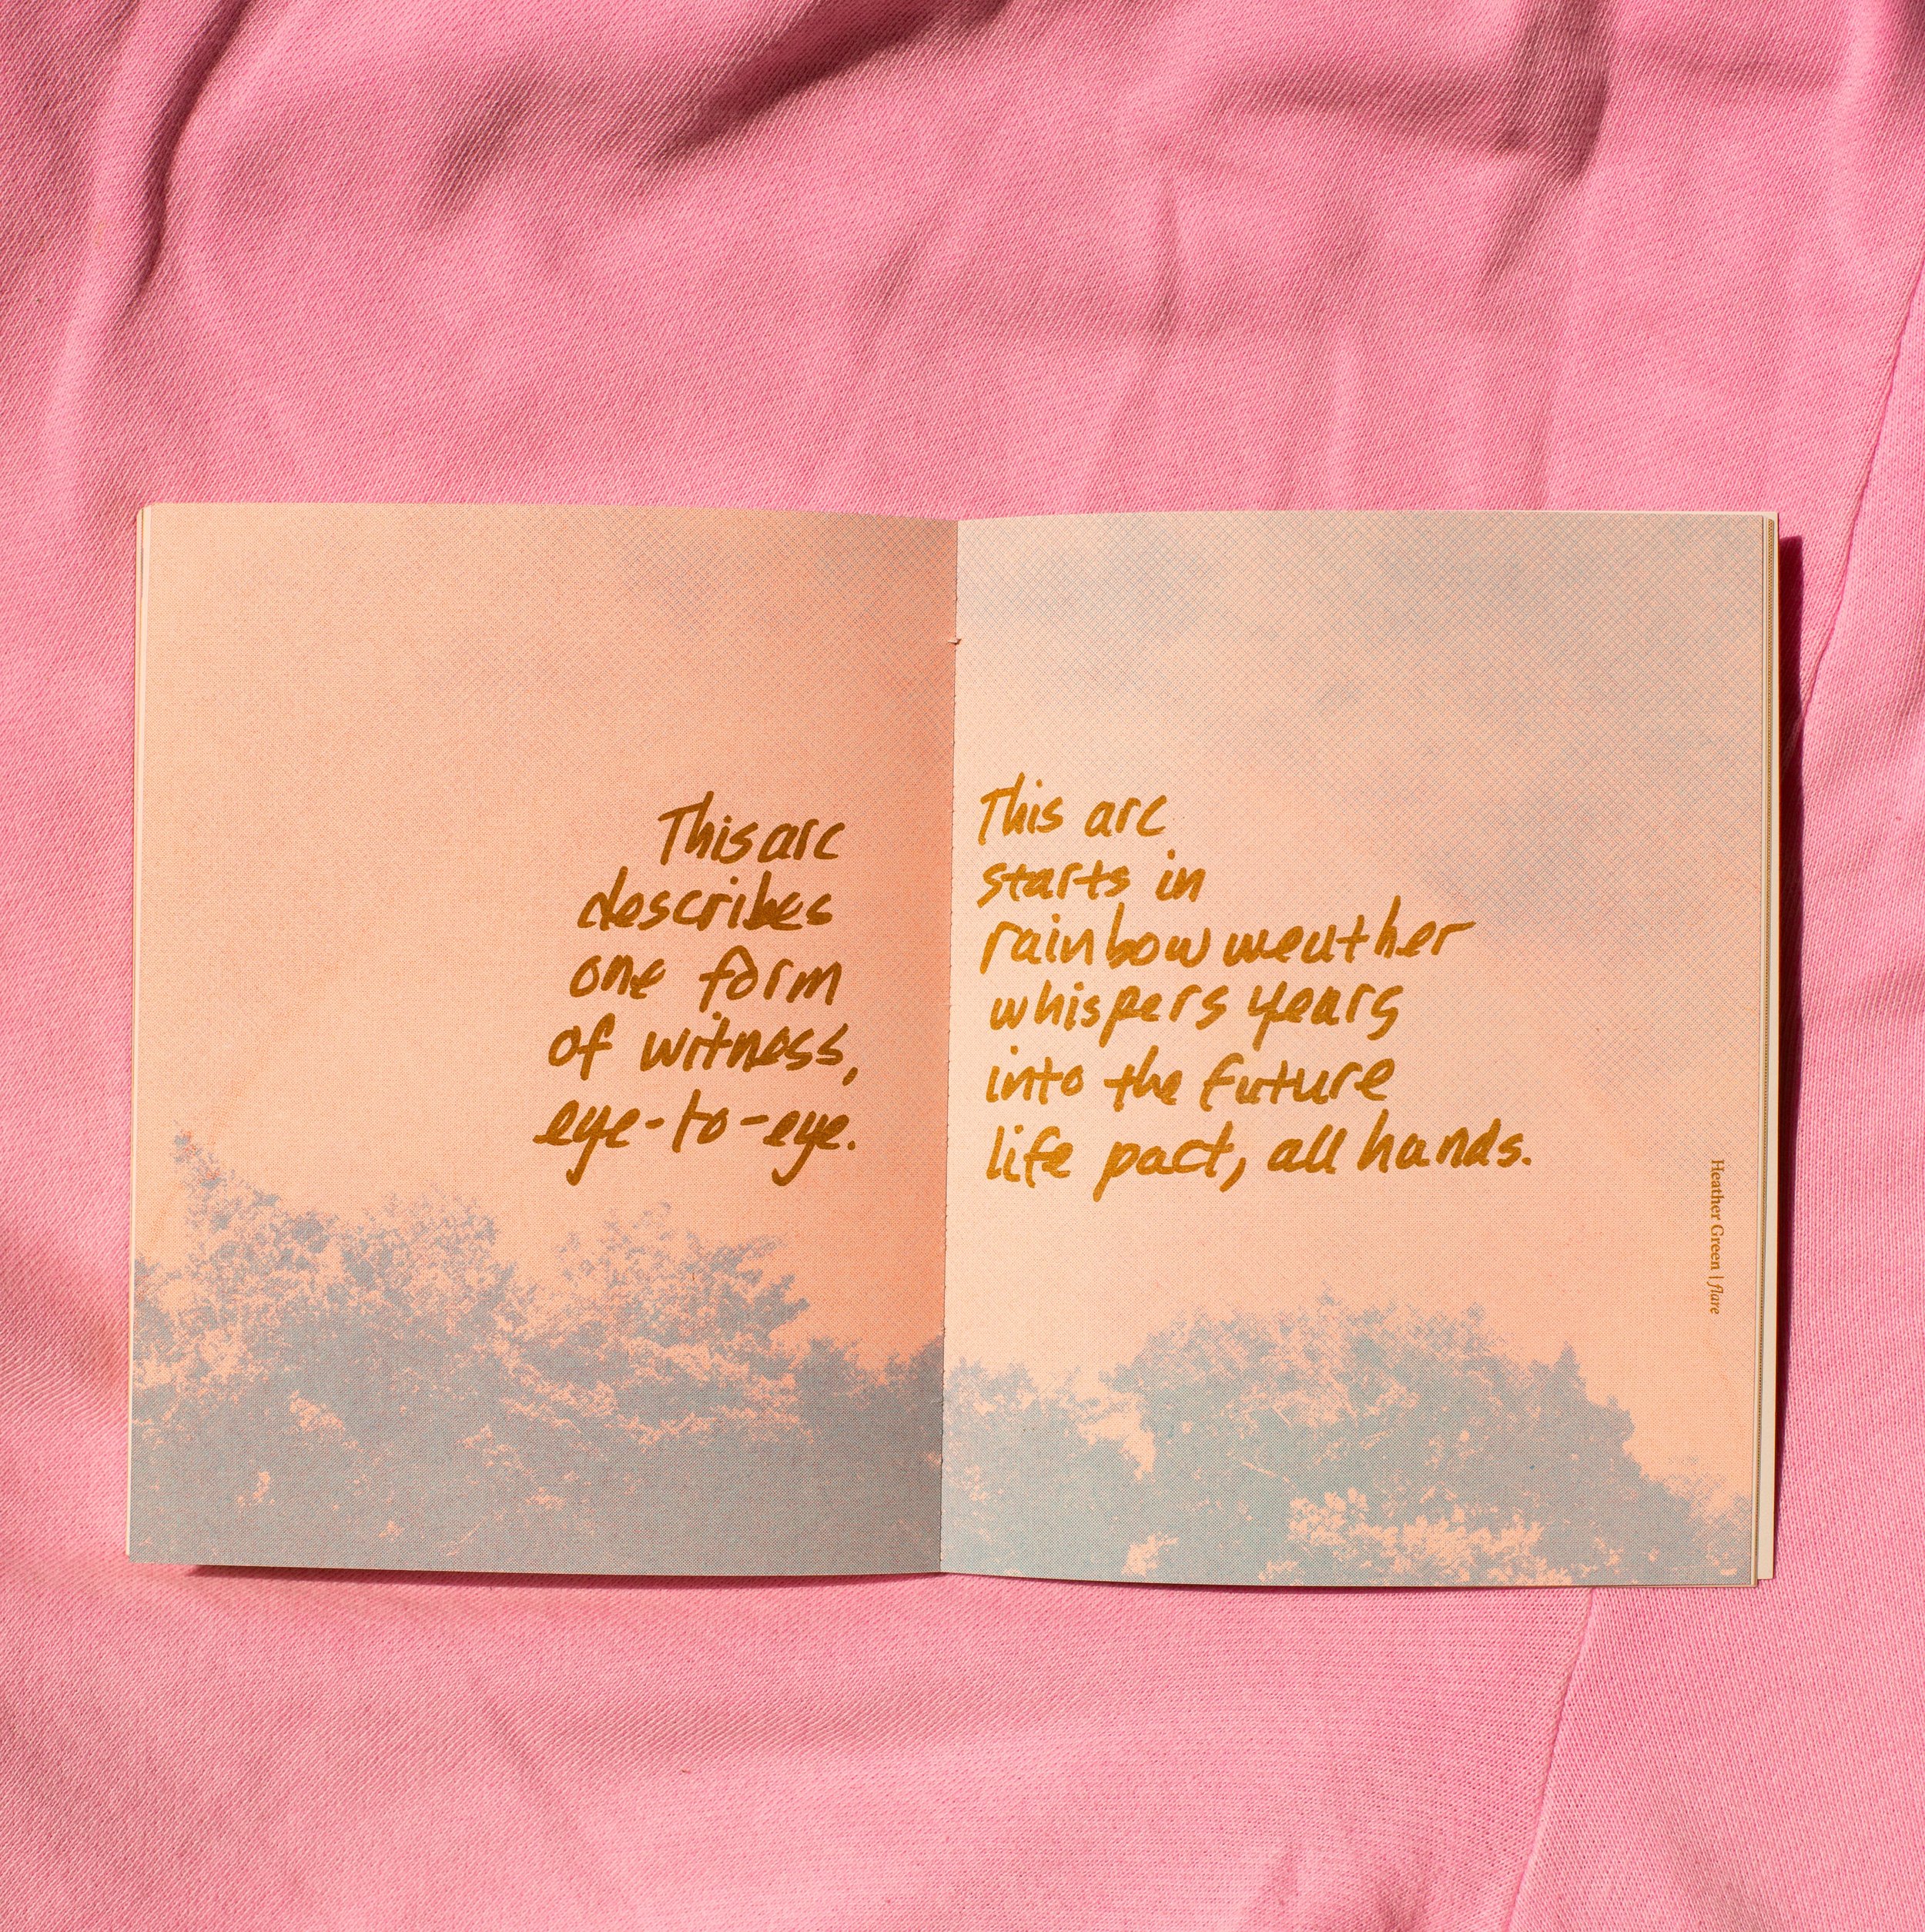 This arc
describes
one form
of witness,
eye-to-eye.
This arc
starts in
rainbow weather
whispers years
into the future
life pact, all hands.
Heather Green | flare